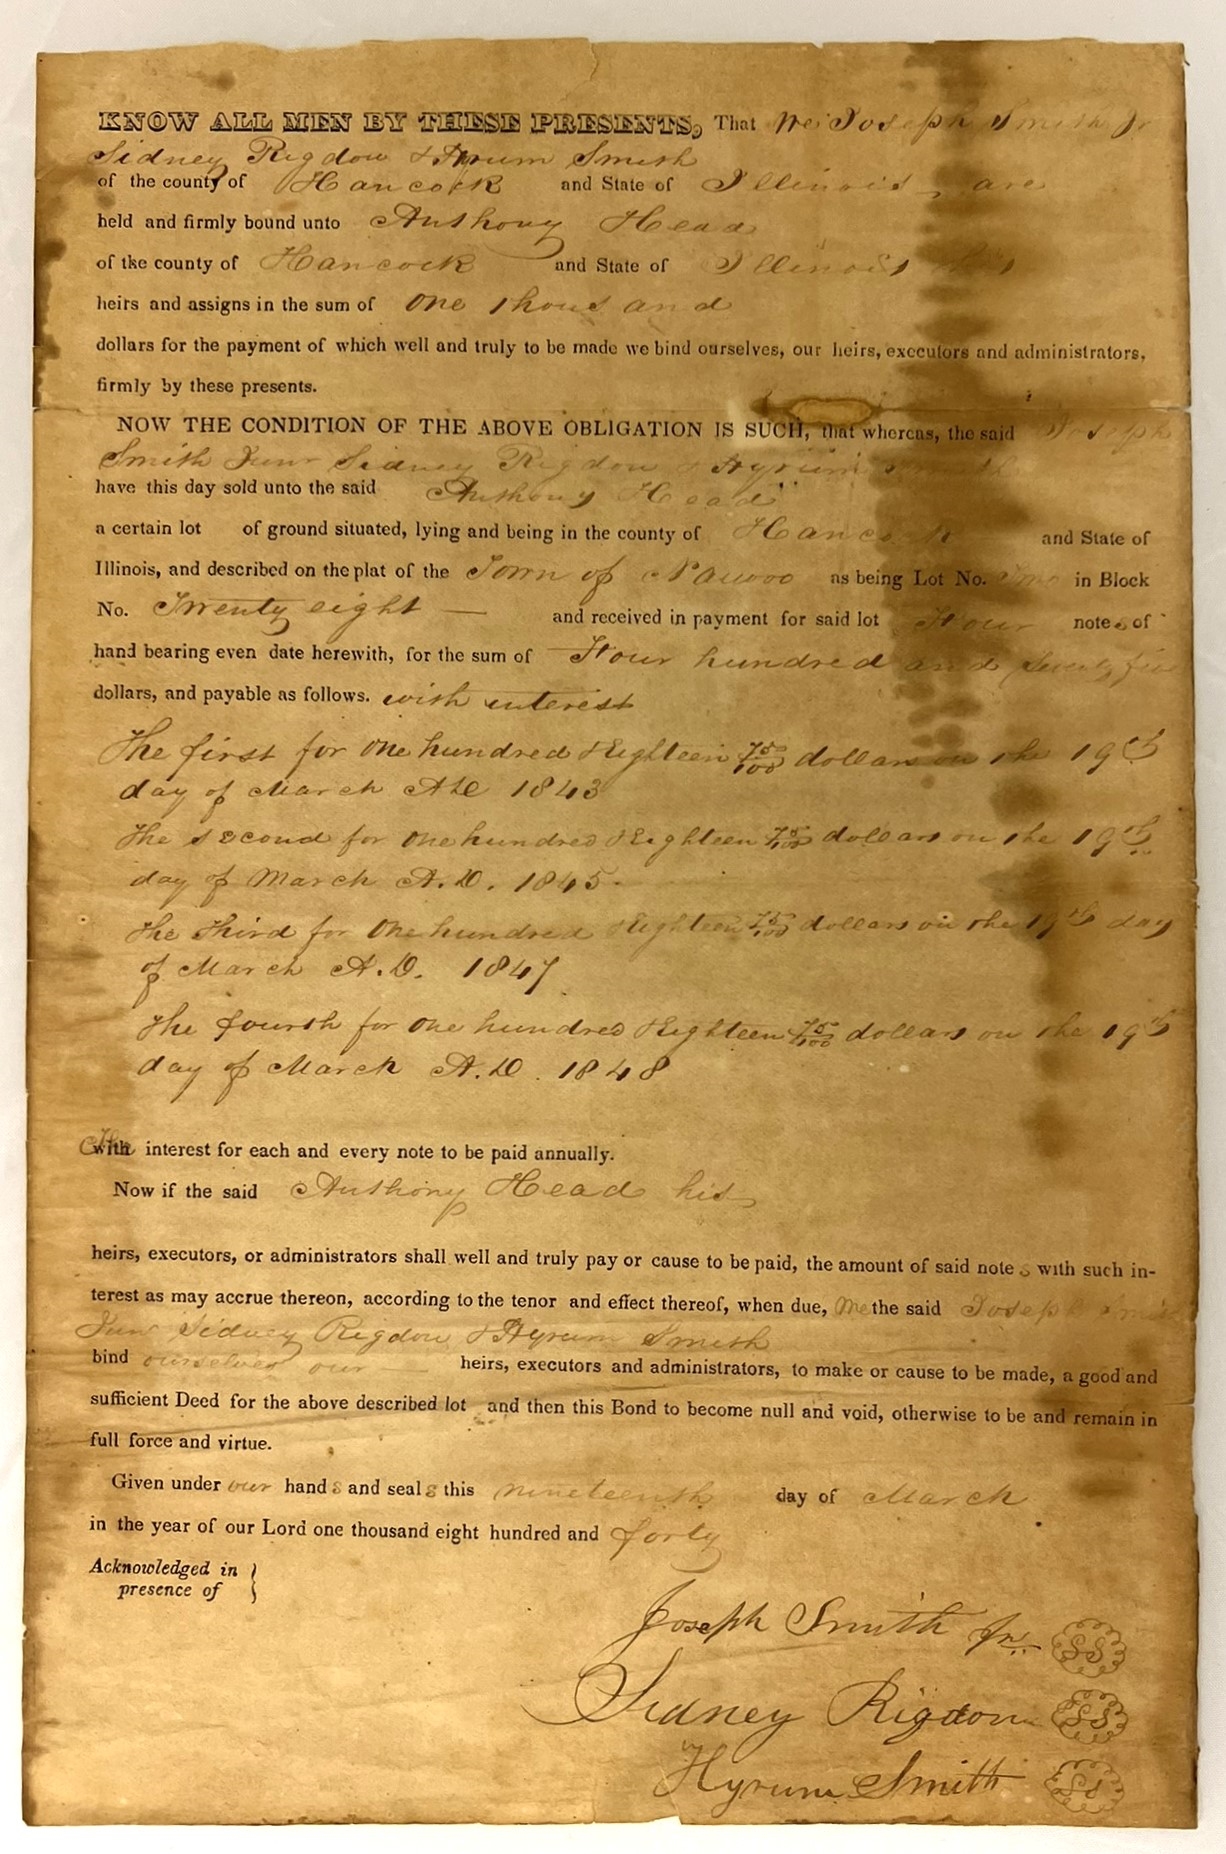 KNOW ALL MEN BY THESE PRESENTS, That We Joseph Smith Jr
Sidney Rigdon & Hyrum Smith
of the county of Hancock and State of Illinois, are
held and firmly bound unto Anthony Head
of the county of Hancock and State of Illinois his
heirs and assigns in the sum of One thousand
dollars for the payment of which well and truly to be made we bind ourselves, our heirs, executors and administrators,
firmly by these presents.
NOW THE CONDITION OF THE ABOVE OBLIGATION IS SUCH, that whereas, the said Joseph
Smith Junr Sidney Rigdon & Hyrum Smith
have this day sold unto the said Anthony Head
a certain lot of ground situated, lying and being in the county of Hancock and State of
Illinois, and described on the plat of the Town of Nauvoo as being Lot No. in Block
No. Twenty eight — and received in payment for said lot Four notes of
hand bearing even date herewith, for the sum of Four hundred and seventy five
dollars, and payable as follows. with interest
The first for One hundred & Eighteen 75/100 dollars on the 19th
day of March AD 1843
The second for One hundred & Eighteen 75/100 dollars on the 19th
day of March A.D. 1845.
The third for One hundred & Eighteen 75/100 dollars on the 19th day
of March A.D. 1847
The fourth for One hundred & Eighteen 75/100 dollars on the 19th
day of March A.D. 1848
with interest for each and every note to be paid annually.
Now if the said Anthony Head his
heirs, executors, or administrators shall well and truly pay or cause to be paid, the amount of said notes with such in-
terest as may accrue thereon, according to the tenor and effect thereof, when due, We the said Joseph Smith
Junr Sidney Rigdon & Hyrum Smith
bind ourselves our — heirs, executors and administrators, to make or cause to be made, a good and
sufficient Deed for the above described lot and then this Bond to become null and void, otherwise to be and remain in
full force and virtue.
Given under our hands and seals this nineteenth day of March
in the year of our Lord one thousand eight hundred and forty
Acknowledged in }
presence of }
Joseph Smith Jr. SS
Sidney Rigdon SS
Hyrum Smith SS